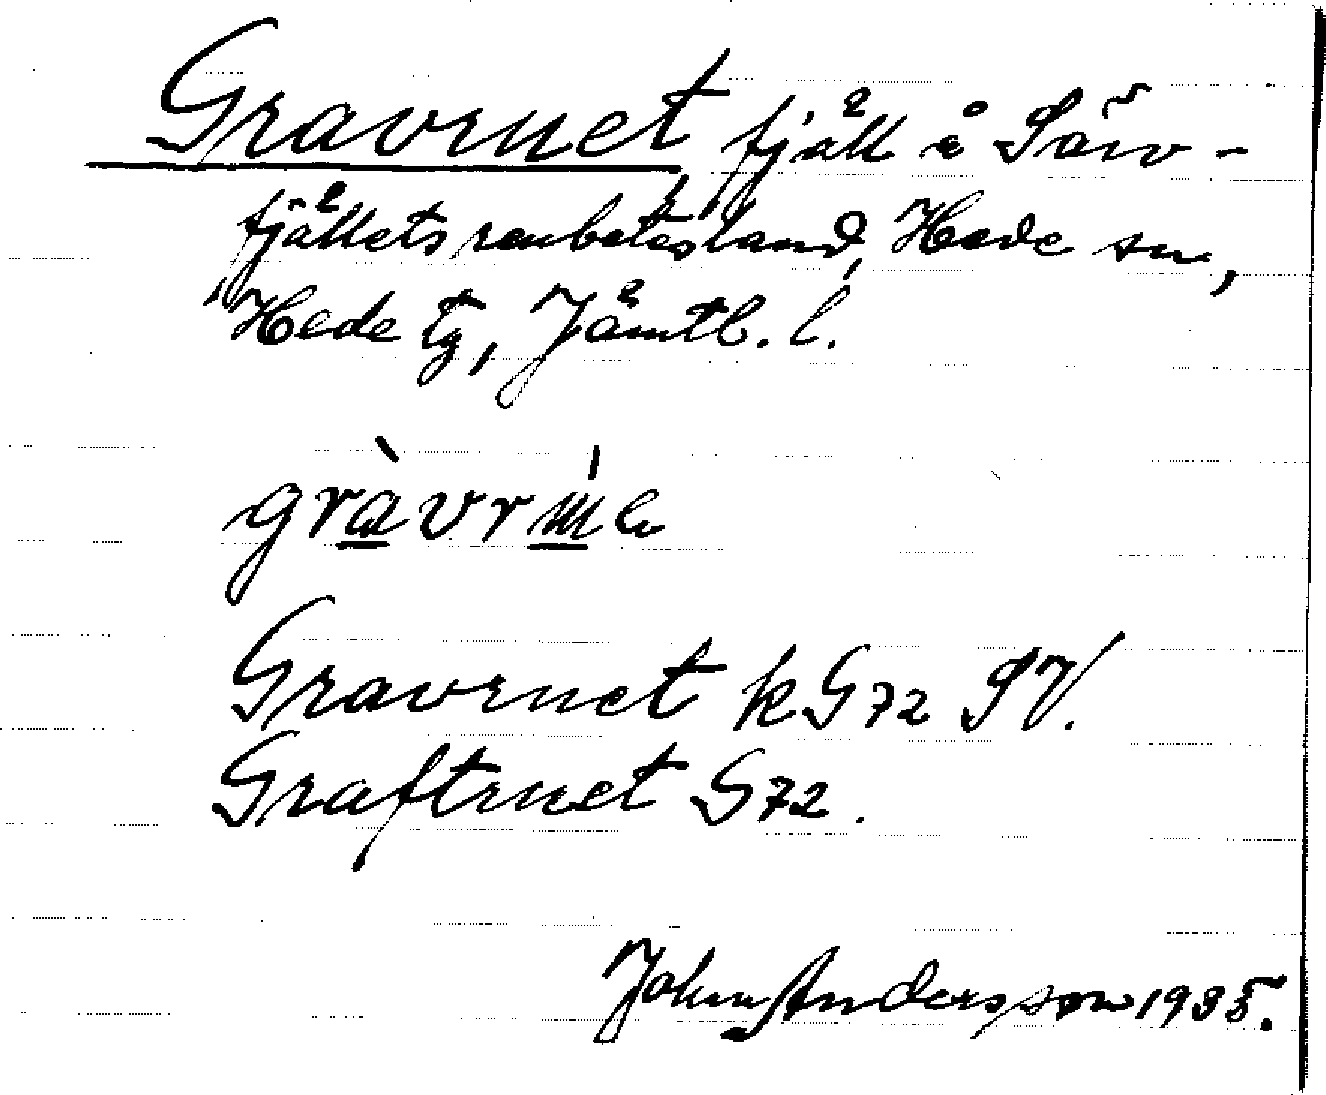 Gravruet, fjäll i Särv-
fjällets renbetesland, Hede sn,
Hede tg, Jämtl. l.
Gravruet kG72 SV.
Graftruet G72.
John Andersson 1935.